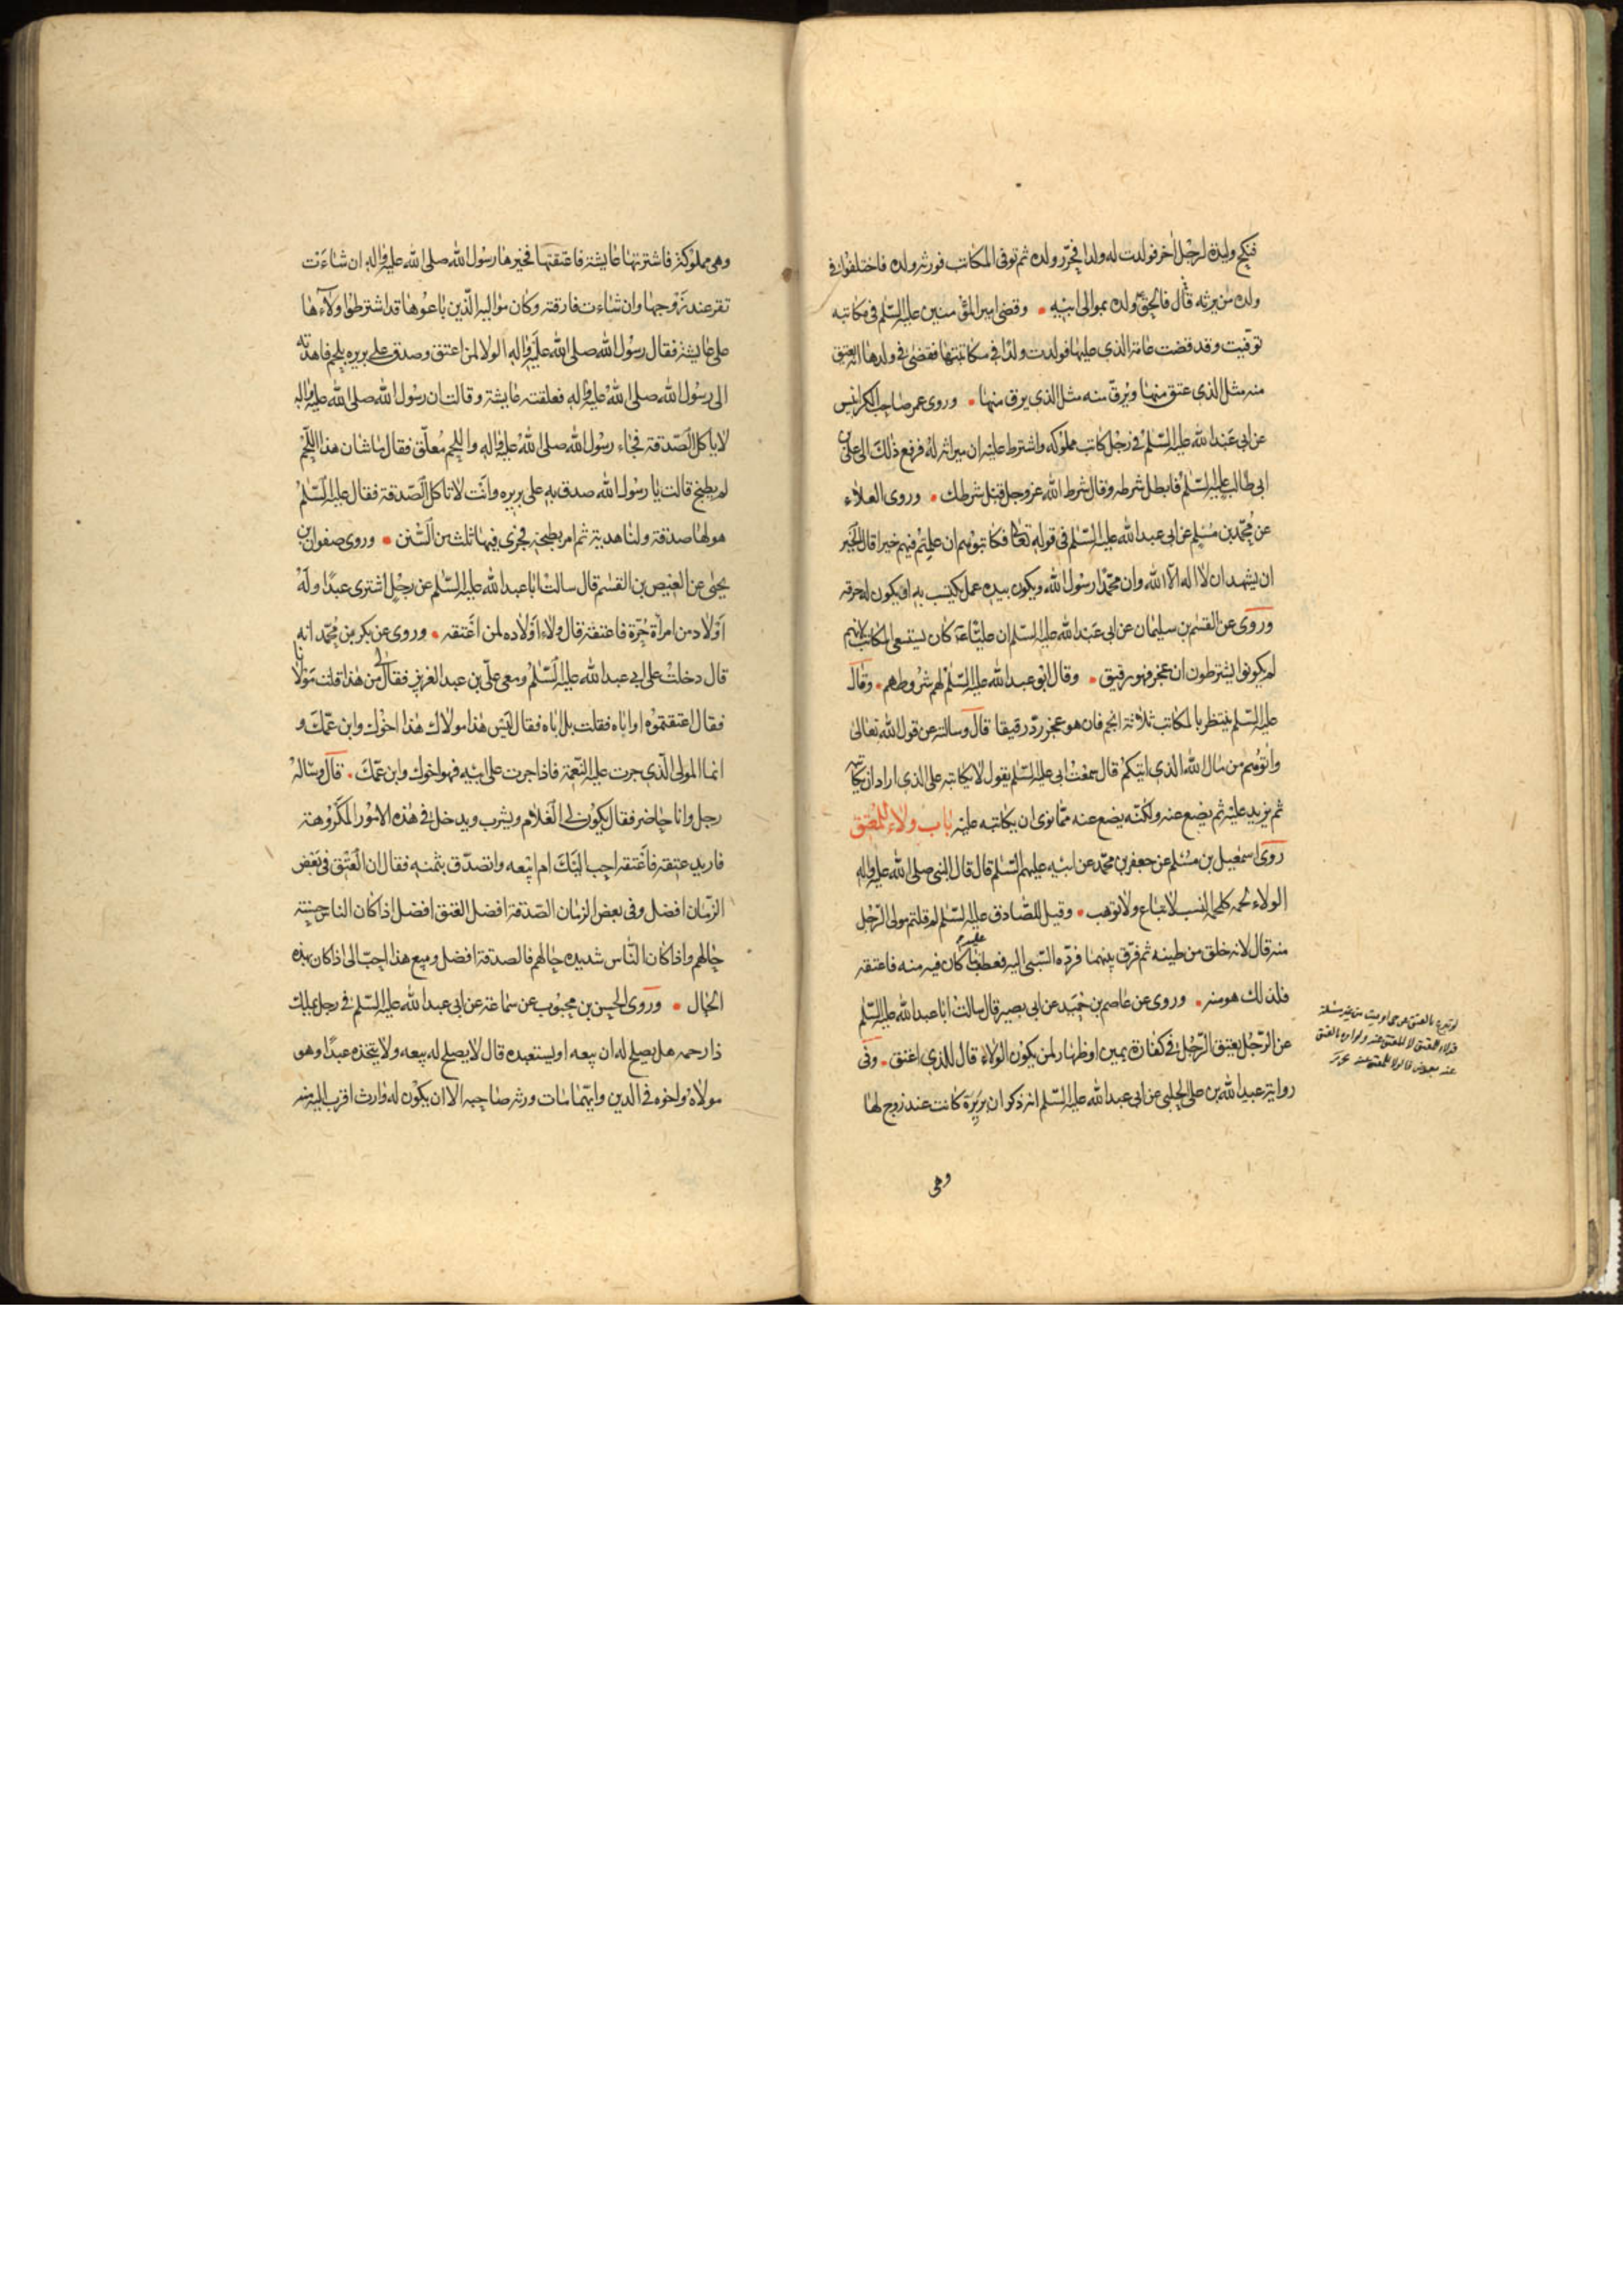 فنكح وليدة لرجل آخر فولدت له ولدا فحرر ولده ثم توفى المكاتب فورثه ولده فاختلفوا فى
ولده من يرثه قال فالحق ولده بموالى ابيه • وقضى امير المؤمنين عليه السلم فى مكاتبه
توفيت وقد قضت عامة الذى عليها فولدت ولدا فى مكاتبتها فقضى فى ولدها انه يعتق
منه مثل الذى عتق منها ويرق منه مثل الذى يرق منها • وروى عمر صاحب الكرابيس
عن ابى عبد الله عليه السلم فى رجل كاتب مملوكه واشترط عليه ان ميراثه له فرفع ذلك الى على بن
ابى طالب عليه السلم فابطل شرطه وقال شرط الله عز وجل قبل شرطك • وروى العلاء
عن محمد بن مسلم عن ابى عبد الله عليه السلم فى قوله تعالى فكاتبوهم ان علمتم فيهم خيرا قال الخير
ان يشهد ان لا اله الا الله وان محمدا رسول الله ويكون بيده عمل يكتسب به او يكون له حرفه
وروى عن القسم بن سليمان عن ابى عبد الله عليه السلم ان عليا ع كان يستسعى المكاتب لانهم
لم يكونوا يشترطون ان عجز فهو رقيق • وقال ابو عبد الله عليه السلم لهم شروطهم • وقال
عليه السلم ينتظر بالمكاتب ثلاثة انجم فان هو عجز رد رقيقا قال وسالته عن قول الله تعالى
واتوهم من مال الله الذى اتيكم قال سمعت ابى عليه السلم يقول لا يكاتبه على الذى اراد ان يكاتبه
ثم يزيد عليه ثم يضع عنه ولكنه يضع عنه مما نوى ان يكاتبه عليه باب ولاء المعتق
روى اسمعيل بن مسلم عن جعفر بن محمد عن ابيه عليهم السلم قال قال النبى صلى الله عليه واله
الولاء لحمه كلحمة النسب لا تباع ولا توهب • وقيل للصادق عليه السلم لم قلتم مولى الرجل
منه قال لانه خلق من طينه ثم فرق بينهما فرده السبى اليه فعطف عليه ما كان فيه منه فاعتقه
فلذلك هو منه • وروى عن عاصم بن حميد عن ابى بصير قال سالت ابا عبد الله عليه السلم
عن الرجل يعتق الرجل فى كفارة يمين او ظهار لمن يكون الولاء قال للذى اعتق • وفى
رواية عبيد الله بن على الحلبى عن ابى عبد الله عليه السلم انه ذكر ان بريرة كانت عند زوج لها
وهى
وهى مملوكة فاشترتها عايشة فاعتقتها فخيرها رسول الله صلى الله عليه واله ان شاءت
تقر عند زوجها وان شاءت فارقته وكان مواليها الذين باعوها قد اشترطوا ولاءها
على عايشة فقال رسول الله صلى الله عليه واله الولا لمن اعتق وصدق على بريره بلحم فاهدته
الى رسول الله صلى الله عليه واله فعلقته عايشة وقالت ان رسول الله صلى الله عليه واله
لا ياكل الصدقة فجاء رسول الله صلى الله عليه واله واللحم معلق فقال ما شان هذا اللحم
لم يطبخ قالت يا رسول الله صدق به على بريره وانت لا تاكل الصدقة فقال عليه السلم
هو لها صدقة ولنا هدية ثم امر بطبخه فجرى فيها ثلث من السنن • وروى صفوان بن
يحيى عن العيص بن القسم قال سالت ابا عبد الله عليه السلم عن رجل اشترى عبدا وله
اولاد من امراة حرة فاعتقه قال ولاء اولاده لمن اعتقه • وروى عن بكر بن محمد انه
قال دخلت على ابى عبد الله عليه السلم ومعى على بن عبد العزيز فقال لى من هذا قلت مولانا
فقال اعتقتموه او اباه فقلت بل اباه فقال ليس هذا مولاك هذا اخوك وابن عمك و
انما المولى الذى جرت عليه النعمة فاذا جرت على ابيه فهو اخوك وابن عمك • قال وساله
رجل وانا حاضر فقال يكون لى الغلام ويشرب ويدخل فى هذه الامور المكروهة
فاريد عتقه فاعتقه احب اليك ام ابيعه واتصدق بثمنه فقال ان العتق فى بعض
الزمان افضل وفى بعض الزمان الصدقة افضل العتق افضل اذا كان الناس حسنة
حالهم واذا كان الناس شديده حالهم فالصدقة افضل وبيع هذا احب الى اذا كان بهذه
الحال • وروى الحسن بن محبوب عن سماعة عن ابى عبد الله عليه السلم فى رجل يملك
ذا رحمه هل يصلح له ان يبيعه او يستعبده قال لا يصلح له بيعه ولا يتخذه عبدا وهو
مولاه واخوه فى الدين وايهما مات ورثه صاحبه الا ان يكون له وارث اقرب اليه منه